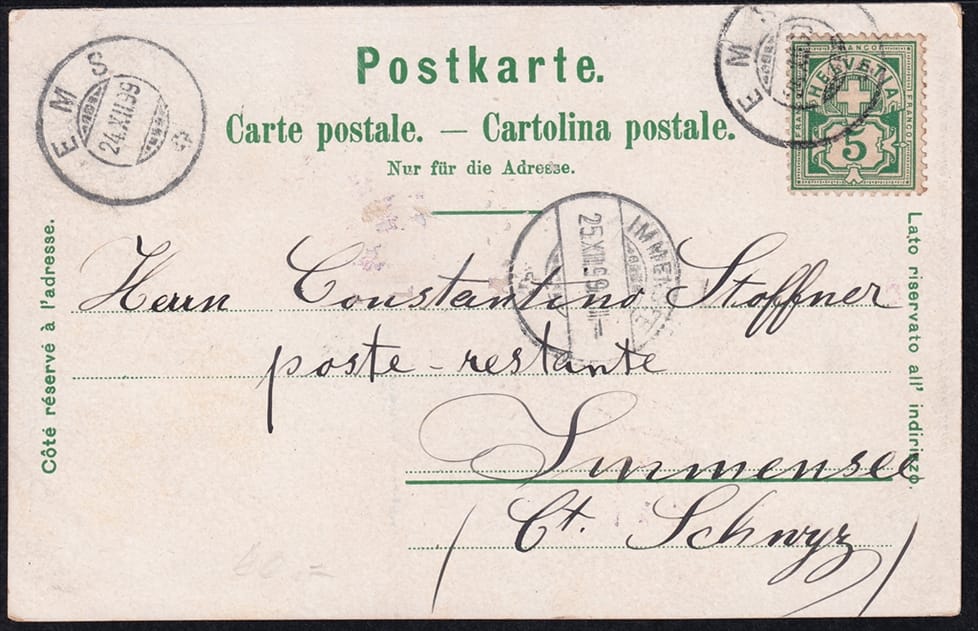 Postkarte.
Carte postale. — Cartolina postale.
Nur für die Adresse.
EMS
24.XII.99
EMS
FRANCO
HELVETIA
FRANCO
FRANCO
5
IMMENSEE
25.XII.99
Côté réservé à l'adresse.
Lato riservato all' indirizzo.
Herrn Constantino Stoffner
poste-restante
Immensee
(Ct. Schwyz)